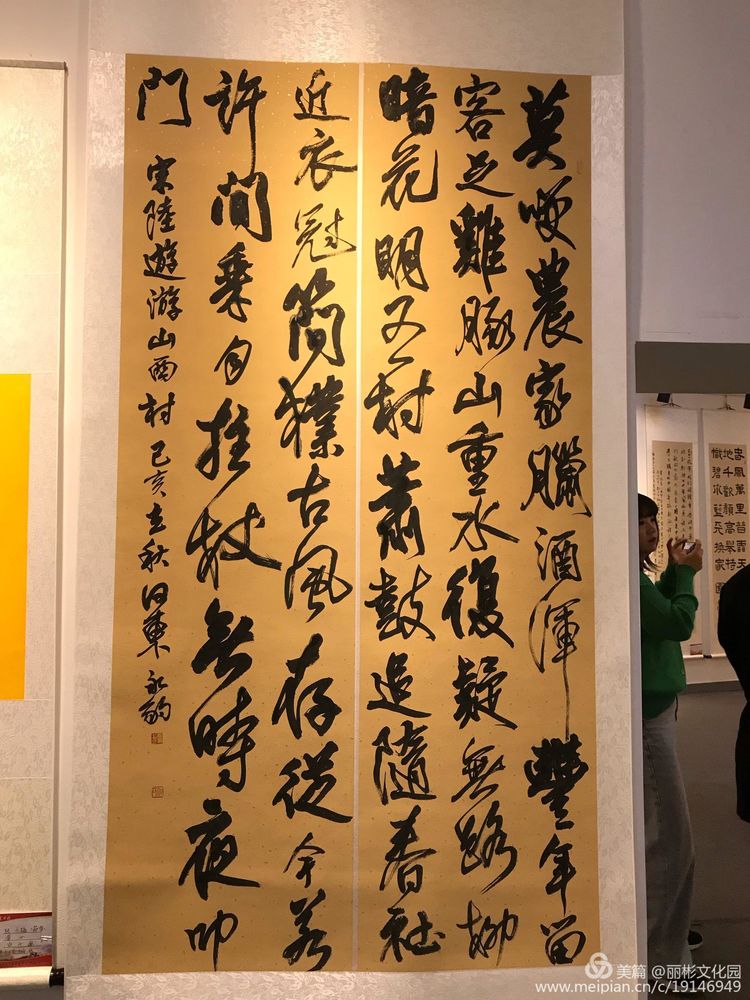 莫咲農家臘酒渾豐年留
客足雞豚山重水復疑無路柳
暗花明又一村蕭鼓追隨春社
近衣冠簡樸古風存從今若
許閒乘月拄杖無時夜叩
門
宋陸遊游山西村 己亥立秋
風萬里皆雨天
地千歡顏高舉
幟碧水藍天換家園
美篇 @丽彬文化园
www.meipian.cn/c/19146949